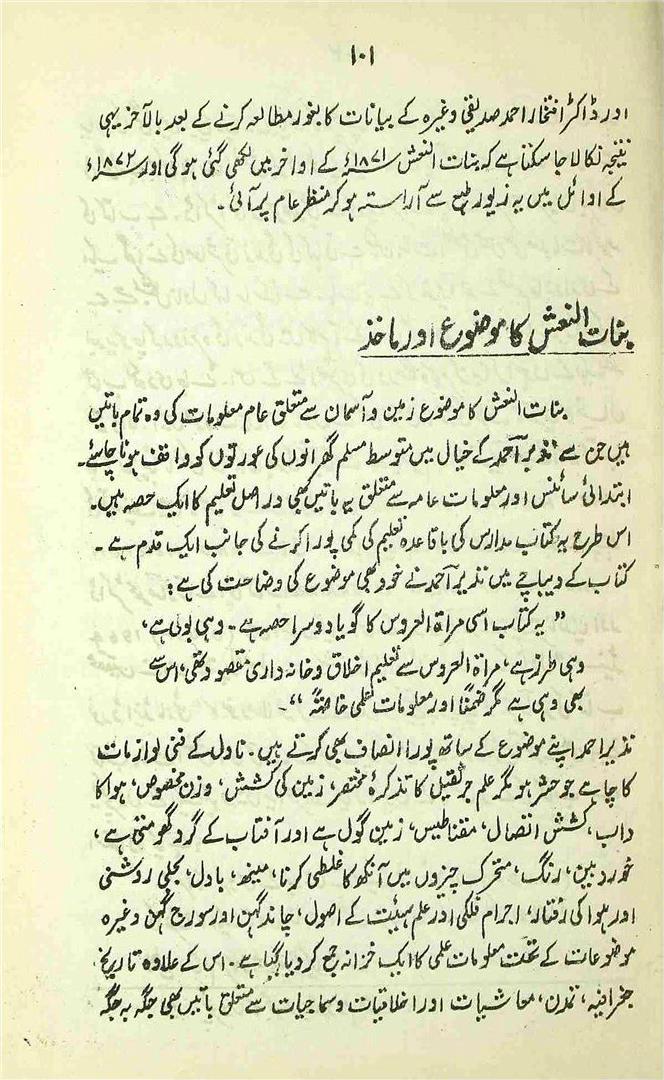 ۱۰۱
اور ڈاکٹر افتخار احمد صدیقی وغیرہ کے بیانات کا بغور مطالعہ کرنے کے بعد بالآخر یہی
نتیجہ نکالا جا سکتا ہے کہ بنات النعش ۱۸۷۱ء کے اواخر میں لکھی گئی ہوگی اور ۱۸۷۲ء
کے اوائل میں یہ زیور طبع سے آراستہ ہو کر منظر عام پر آئی۔
بنات النعش کا موضوع اور ماخذ
بنات النعش کا موضوع زمین و آسمان سے متعلق عام معلومات کی وہ تمام باتیں
ہیں جن سے نذیر احمد کے خیال میں متوسط مسلم گھرانوں کی عورتوں کو واقف ہونا چاہئے۔
ابتدائی سائنس اور معلومات عامہ سے متعلق یہ باتیں بھی دراصل تعلیم کا ایک حصہ ہیں۔
اس طرح یہ کتاب مدارس کی باقاعدہ تعلیم کی کمی پورا کرنے کی جانب ایک قدم ہے۔
کتاب کے دیباچے میں نذیر احمد نے خود بھی موضوع کی وضاحت کی ہے:
”یہ کتاب اسی مراۃ العروس کا گویا دوسرا حصہ ہے۔ وہی بولی ہے،
وہی طرز ہے، مراۃ العروس سے تعلیم اخلاق و خانہ داری مقصود تھی، اس سے
بھی وہی ہے مگر ضمنًا اور معلومات علمی خاصتہً“۔
نذیر احمد اپنے موضوع کے ساتھ پورا انصاف بھی کرتے ہیں۔ ناول کے فنی لوازمات
کا چاہے جو حشر ہو مگر علم جر ثقیل کا تذکرۂ مختصر، زمین کی کشش، وزن مخصوص، ہوا کا
داب، کشش اتصال، مقناطیس، زمین گول ہے اور آفتاب کے گرد گھومتی ہے،
خوردبین، رنگ، متحرک چیزوں میں آنکھ کا غلطی کرنا، مینھ، بادل، بجلی روشنی
اور ہوا کی رفتار، اجرام فلکی اور علم ہیئت کے اصول، چاند گہن اور سورج گہن وغیرہ
موضوعات کے تحت معلومات علمی کا ایک خزانہ جمع کر دیا گیا ہے۔ اس کے علاوہ تاریخ
جغرافیہ، تمدن، معاشیات اور اخلاقیات و سماجیات سے متعلق باتیں بھی جگہ بہ جگہ